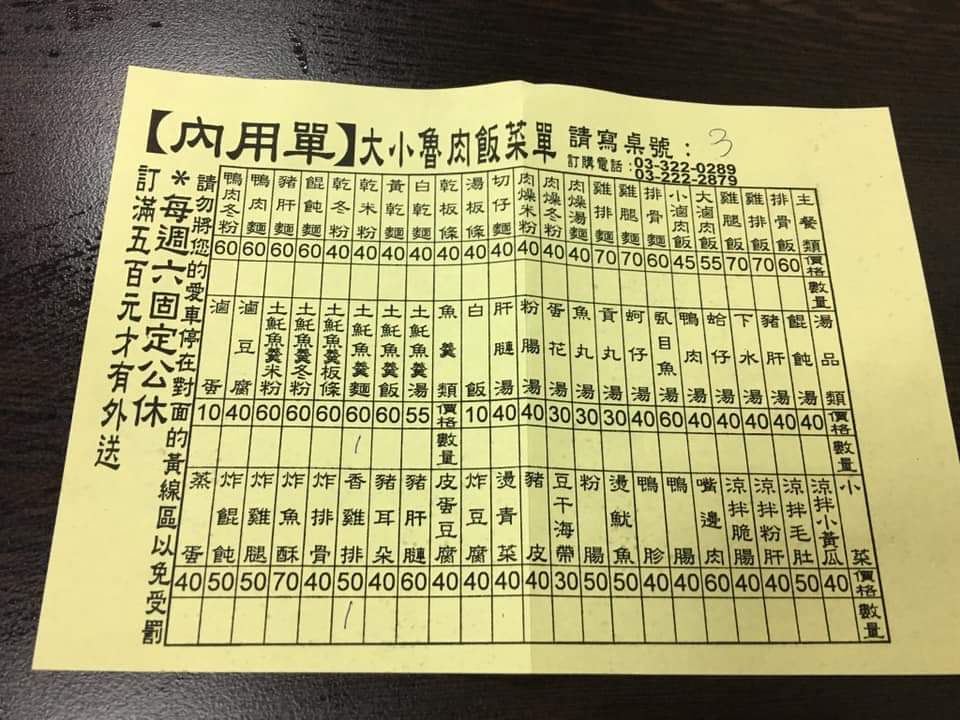 【內用單】大小魯肉飯菜單 請寫桌號：3
訂購電話：03-322-0289
03-222-2879
主餐類 價格 數量
排骨飯 60
雞排飯 70
雞腿飯 70
大滷肉飯 55
小滷肉飯 45
排骨麵 60
雞腿麵 70
雞排麵 70
肉燥湯麵 40
肉燥冬粉 40
肉燥米粉 40
切仔麵 40
湯板條 40
乾板條 40
白乾麵 40
黃乾麵 40
乾米粉 40
乾冬粉 40
餛飩麵 60
豬肝麵 60
鴨肉麵 60
鴨肉冬粉 60
湯品類 價格 數量
餛飩湯 40
豬肝湯 40
下水湯 40
蛤仔湯 40
鴨肉湯 40
虱目魚湯 60
蚵仔湯 40
貢丸湯 30
魚丸湯 30
蛋花湯 30
粉腸湯 40
肝湯 40
白飯 10
魚羹類 價格 數量
土魠魚羹湯 55
土魠魚羹飯 60
土魠魚羹麵 60 1
土魠魚羹板條 60
土魠魚羹冬粉 60
土魠魚羹米粉 60
滷豆腐 40
滷蛋 10
小菜 價格 數量
涼拌小黃瓜 40
涼拌毛肚 50
涼拌粉肝 40
涼拌脆腸 40
嘴邊肉 60
鴨腸 40
鴨胗 40
燙魷魚 50
粉腸 50
豆干海帶 30
豬皮 40
燙青菜 40
炸豆腐 40
皮蛋豆腐 40
豬肝 60
豬耳朵 40
香雞排 50 1
炸排骨 40
炸魚酥 70
炸雞腿 50
炸餛飩 50
蒸蛋 40
請勿將您的愛車停在對面的黃線區以免受罰
＊每週六固定公休
訂滿五百元才有外送